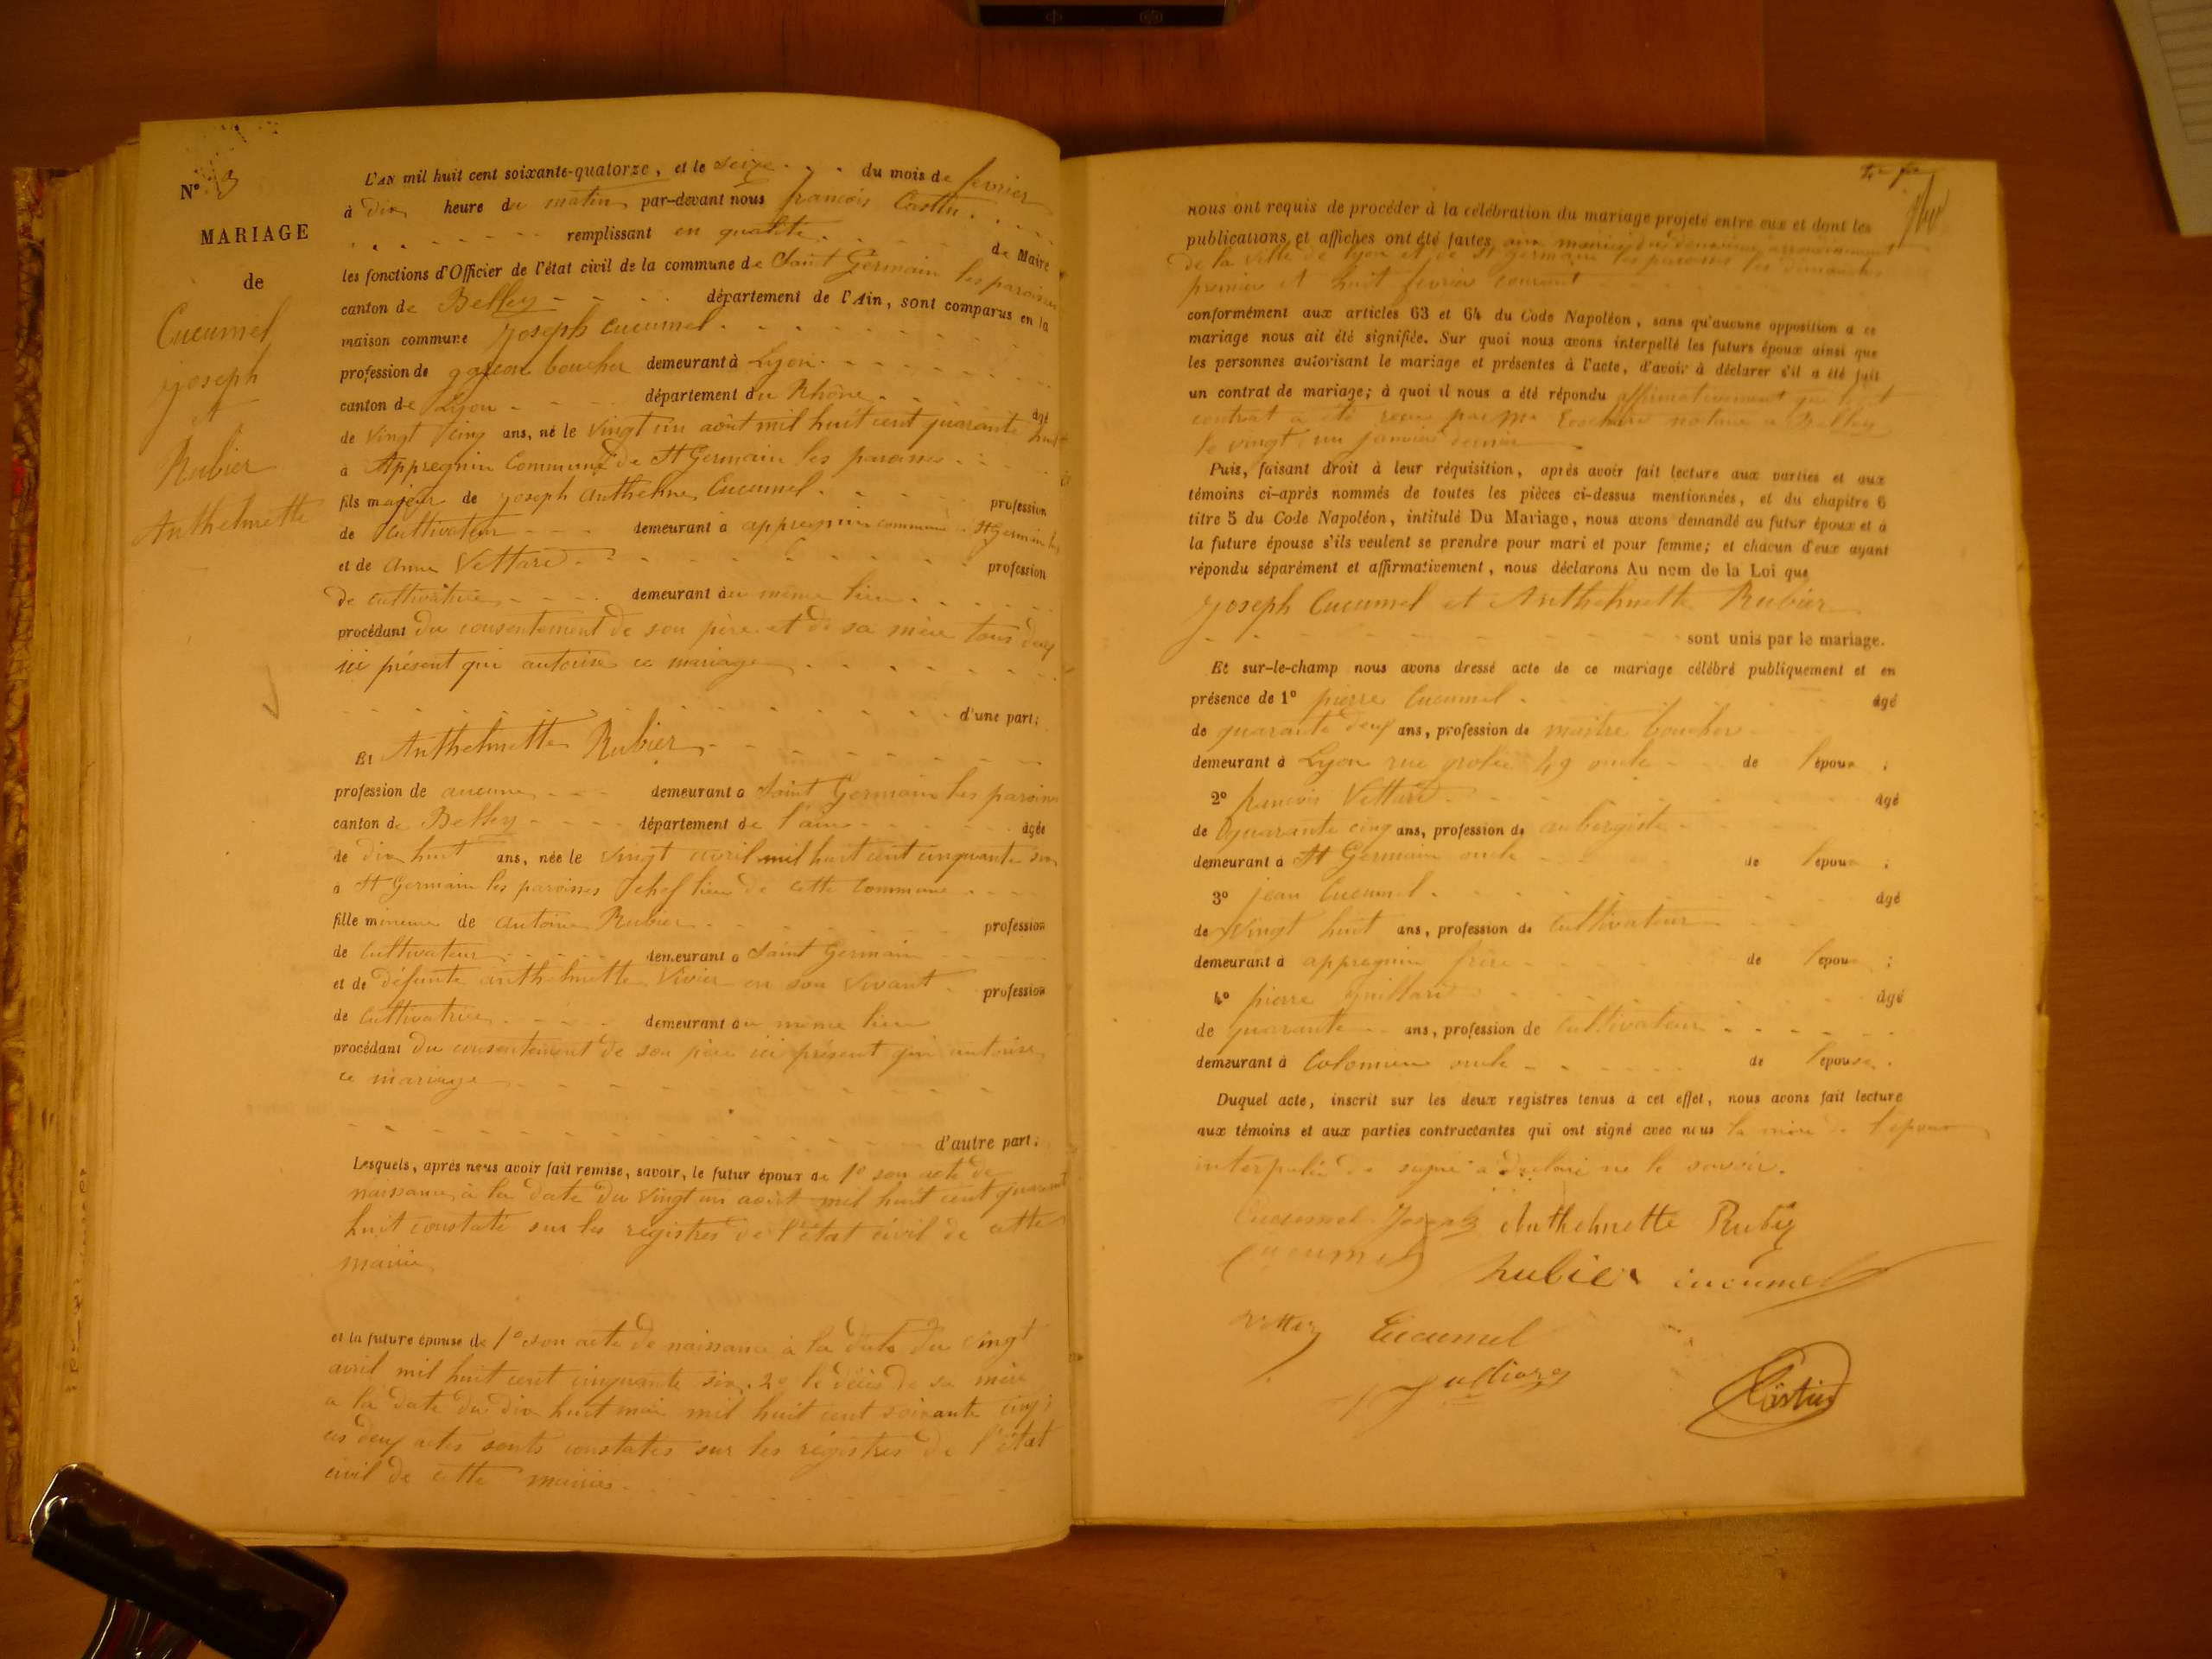 N° 3
MARIAGE
de
Cucumel
joseph
et
Rubier
Anthelmette
L'AN mil huit cent soixante-quatorze, et le seize du mois de fevrier
à dix heure du matin par-devant nous francois Castin
remplissant en qualité de Maire
les fonctions d'Officier de l'état civil de la commune de Saint Germain les paroisses
canton de Belley département de l'Ain, sont comparus en la
maison commune joseph Cucumel
profession de garcon boucher demeurant à Lyon
canton de Lyon département du Rhône agé
de vingt cinq ans, né le vingt un août mil huit cent quarante huit
à Appregnin Commune de St Germain les paroisses
fils majeur de joseph Anthelme Cucumel profession
de Cultivateur demeurant à appregnin commune St Germain les
et de anne Vettard profession
de cultivatrice demeurant au même lieu
procédant du consentement de son père et de sa mère tous deux
ici présent qui autorise ce mariage
d'une part;
Et Anthelmette Rubier
profession de aucune demeurant à Saint Germain les paroisses
canton de Belley département de l'ain agée
de dix huit ans, née le vingt avril mil huit cent cinquante six
à St Germain les paroisses chef lieu de cette Commune
fille mineure de Antoine Rubier profession
de Cultivateur demeurant à Saint Germain
et de défunte anthelmette Vivier en son vivant profession
de Cultivatrice demeurant au même lieu
procédant du consentement de son père ici présent qui autorise
ce mariage
d'autre part;
Lesquels, après nous avoir fait remise, savoir, le futur époux de 1° son acte de
naissance à la date du vingt un août mil huit cent quarante
huit constaté sur les registres de l'état civil de cette
mairie
et la future épouse de 1° son acte de naissance à la date du vingt
avril mil huit cent cinquante six. 2° le décès de sa mère
a la date du dix huit mai mil huit cent soixante cinq;
ces deux actes sonts constatés sur les régistres de l'état
civil de cette mairie
nous ont requis de procéder à la célébration du mariage projeté entre eux et dont les
publications et affiches ont été faites aux mairies du deuxième arrondissement
de la ville de Lyon et de St germain les paroisses les dimanches
premier et huit fevrier courant
conformément aux articles 63 et 64 du Code Napoléon, sans qu'aucune opposition a ce
mariage nous ait été signifiée. Sur quoi nous avons interpellé les futurs époux ainsi que
les personnes autorisant le mariage et présentes à l'acte, d'avoir à déclarer s'il a été fait
un contrat de mariage; à quoi il nous a été répondu affirmativement que
contrat a été recu par Me notaire a Belley
le vingt un janvier dernier
Puis, faisant droit à leur réquisition, après avoir fait lecture aux parties et aux
témoins ci-après nommés de toutes les pièces ci-dessus mentionnées, et du chapitre 6
titre 5 du Code Napoléon, intitulé Du Mariage, nous avons demandé au futur époux et à
la future épouse s'ils veulent se prendre pour mari et pour femme; et chacun d'eux ayant
répondu séparément et affirmativement, nous déclarons Au nom de la Loi que
joseph Cucumel et Anthelmette Rubier
sont unis par le mariage.
Et sur-le-champ nous avons dressé acte de ce mariage célébré publiquement et en
présence de 1° pierre Cucumel âgé
de quarante deux ans, profession de maitre boucher
demeurant à Lyon rue grolée 49 oncle de l'époux ;
2° francois Vettard âgé
de quarante cinq ans, profession de aubergiste
demeurant à St Germain oncle de l'époux ;
3° jean Cucumel âgé
de vingt huit ans, profession de Cultivateur
demeurant à appregnin frère de l'époux ;
4° pierre âgé
de quarante ans, profession de Cultivateur
demeurant à Colomieu oncle de l'épouse.
Duquel acte, inscrit sur les deux registres tenus à cet effet, nous avons fait lecture
aux témoins et aux parties contractantes qui ont signé avec nous la mère de l'époux
interpelée de signé a déclaré ne le savoir.
Cucumel Joseph Anthelmette Rubier
Cucumel Rubier Cucumel
Cucumel
Castin